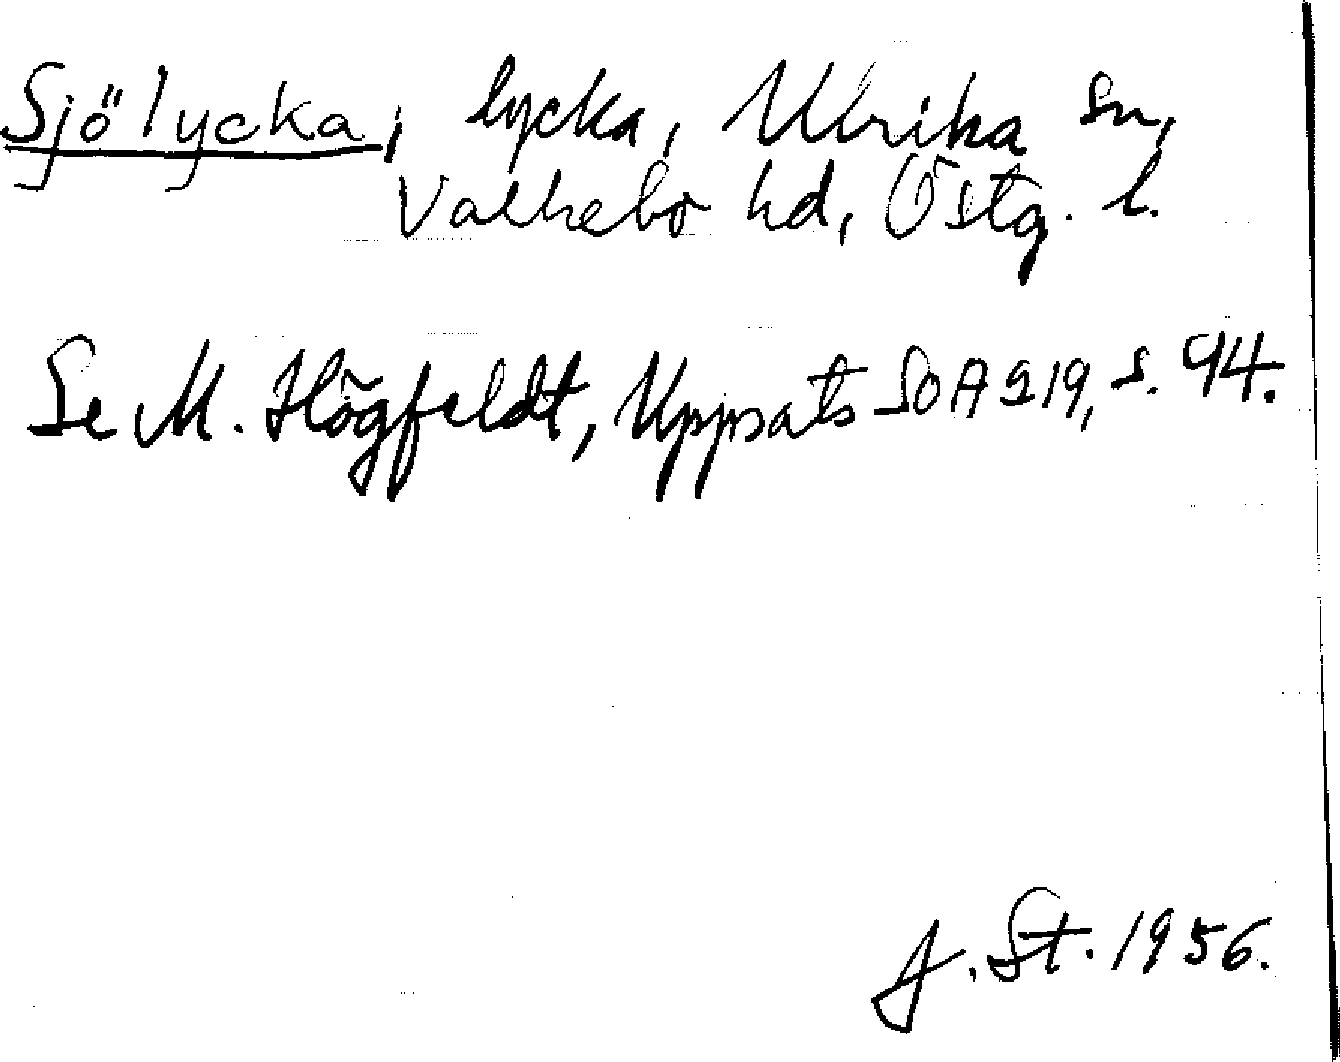 Sjölycka, lycka, Ulrika sn,
Valkebo hd, Östg. l.
Se M. Högfeldt, Uppsats SOA 219, s. 94.
J. St. 1956.